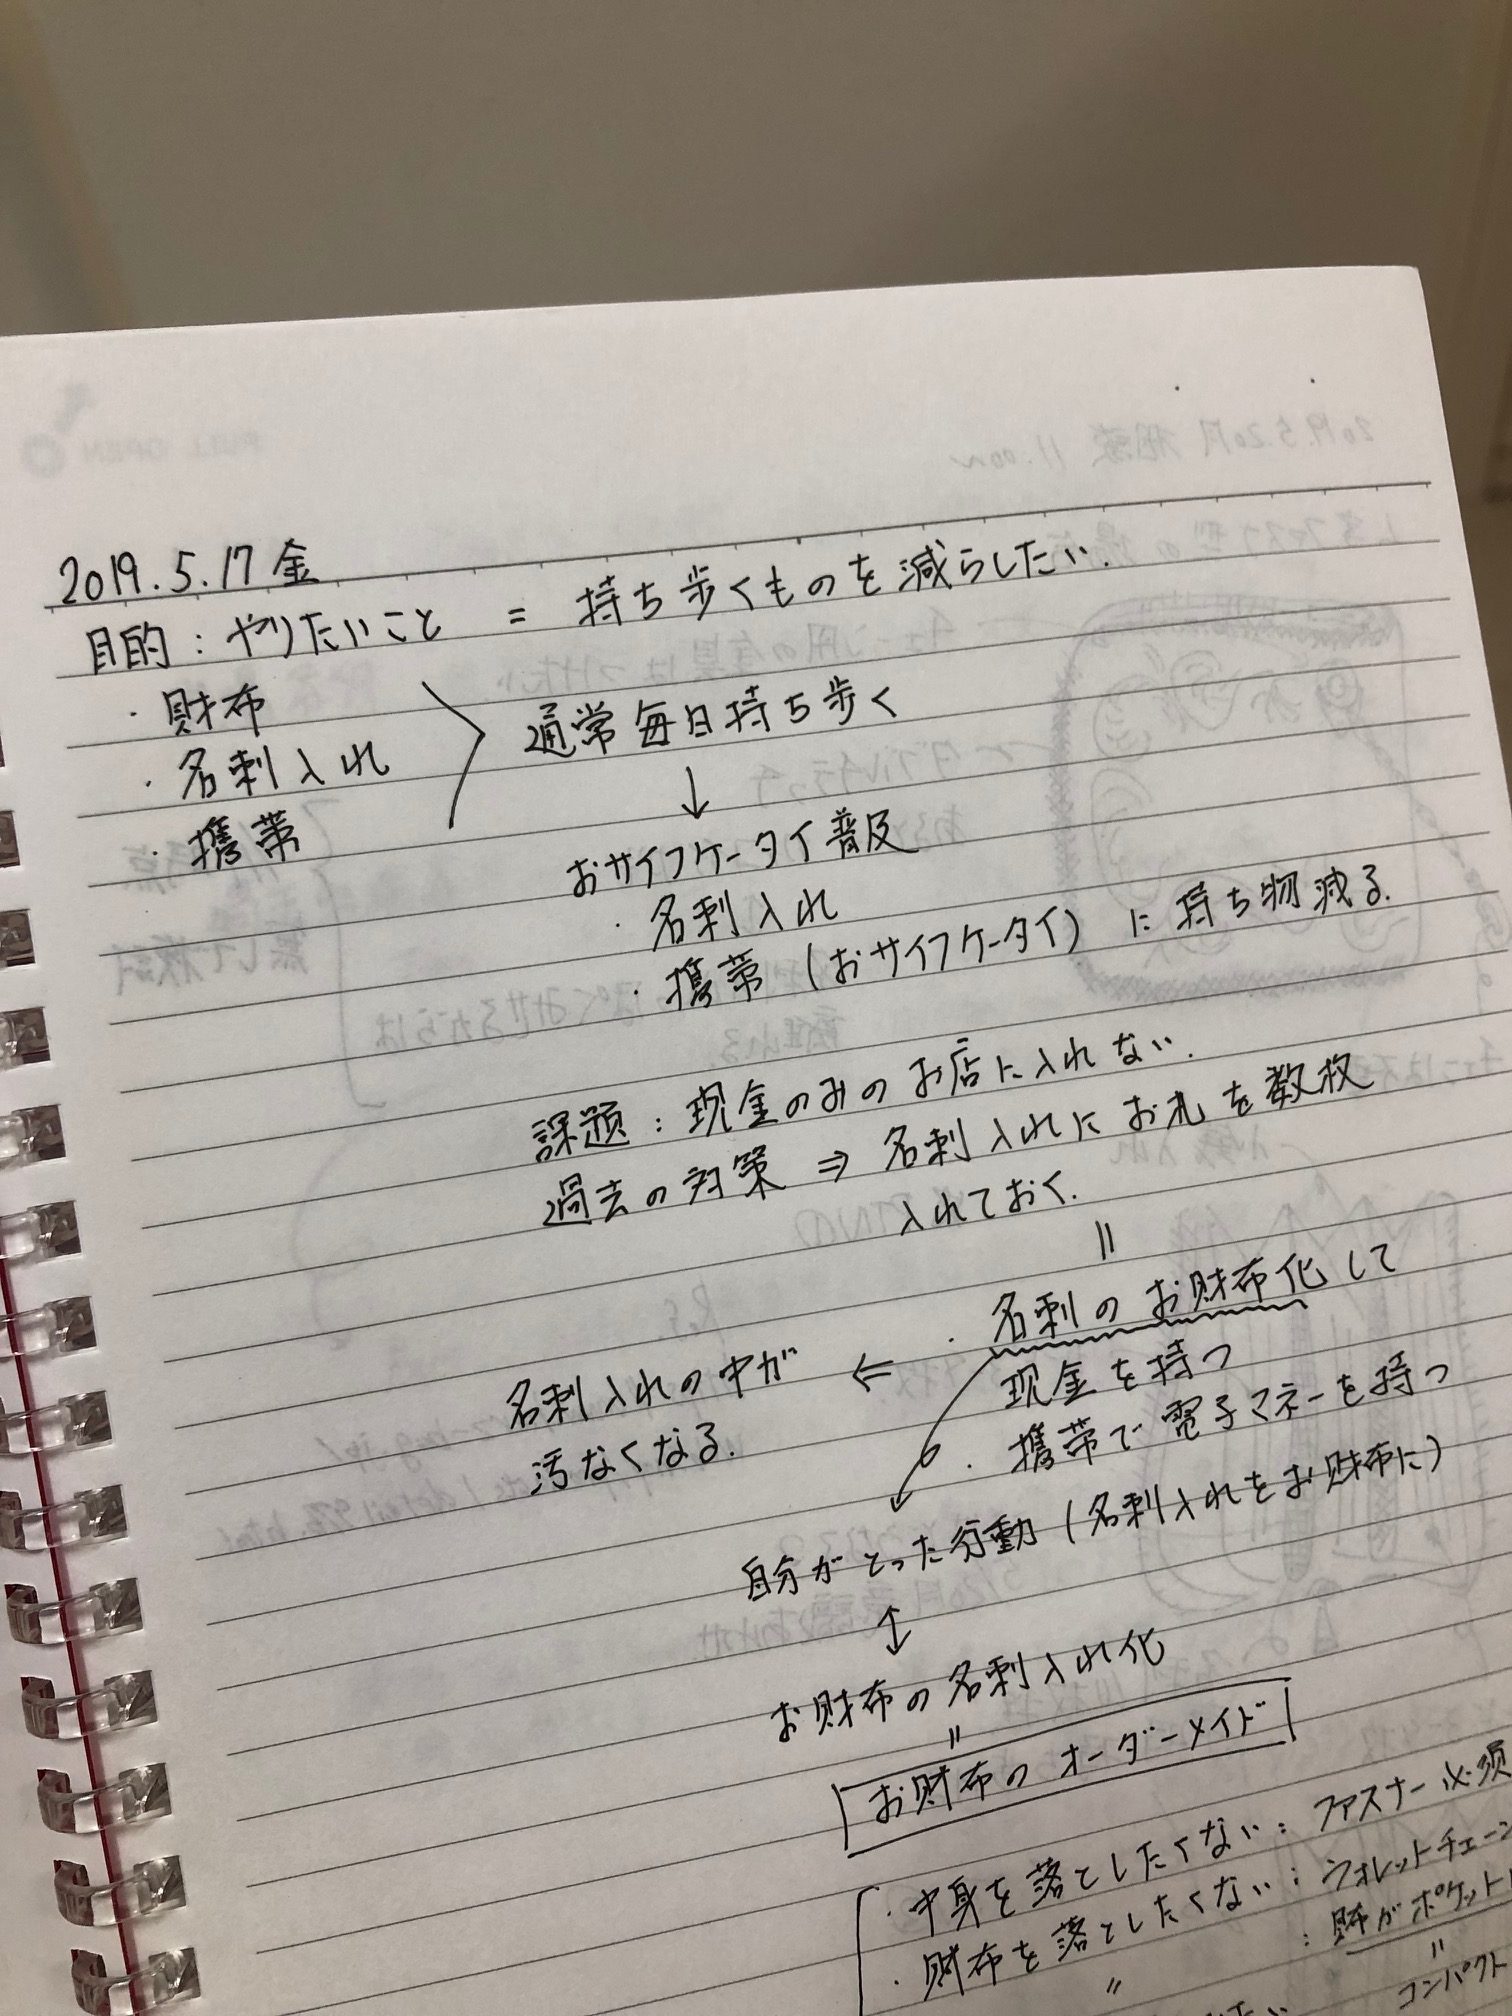 2019.5.17金
目的：やりたいこと = 持ち歩くものを減らしたい.
・財布
・名刺入れ
・携帯
通常毎日持ち歩く
↓
おサイフケータイ普及
・名刺入れ
・携帯（おサイフケータイ）に持ち物減る.
課題：現金のみのお店に入れない.
過去の対策 ⇒ 名刺入れにお札を数枚
入れておく.
〃
・名刺のお財布化して
現金を持つ
⇐
名刺入れの中が
汚なくなる.
・携帯で電子マネーを持つ
自分がとった行動（名刺入れをお財布に）
↕
お財布の名刺入れ化
〃
お財布のオーダーメイド
・中身を落としたくない：ファスナー必須
・財布を落としたくない：ウォレットチェーン
〃 ：財がポケット
〃
コンパクト